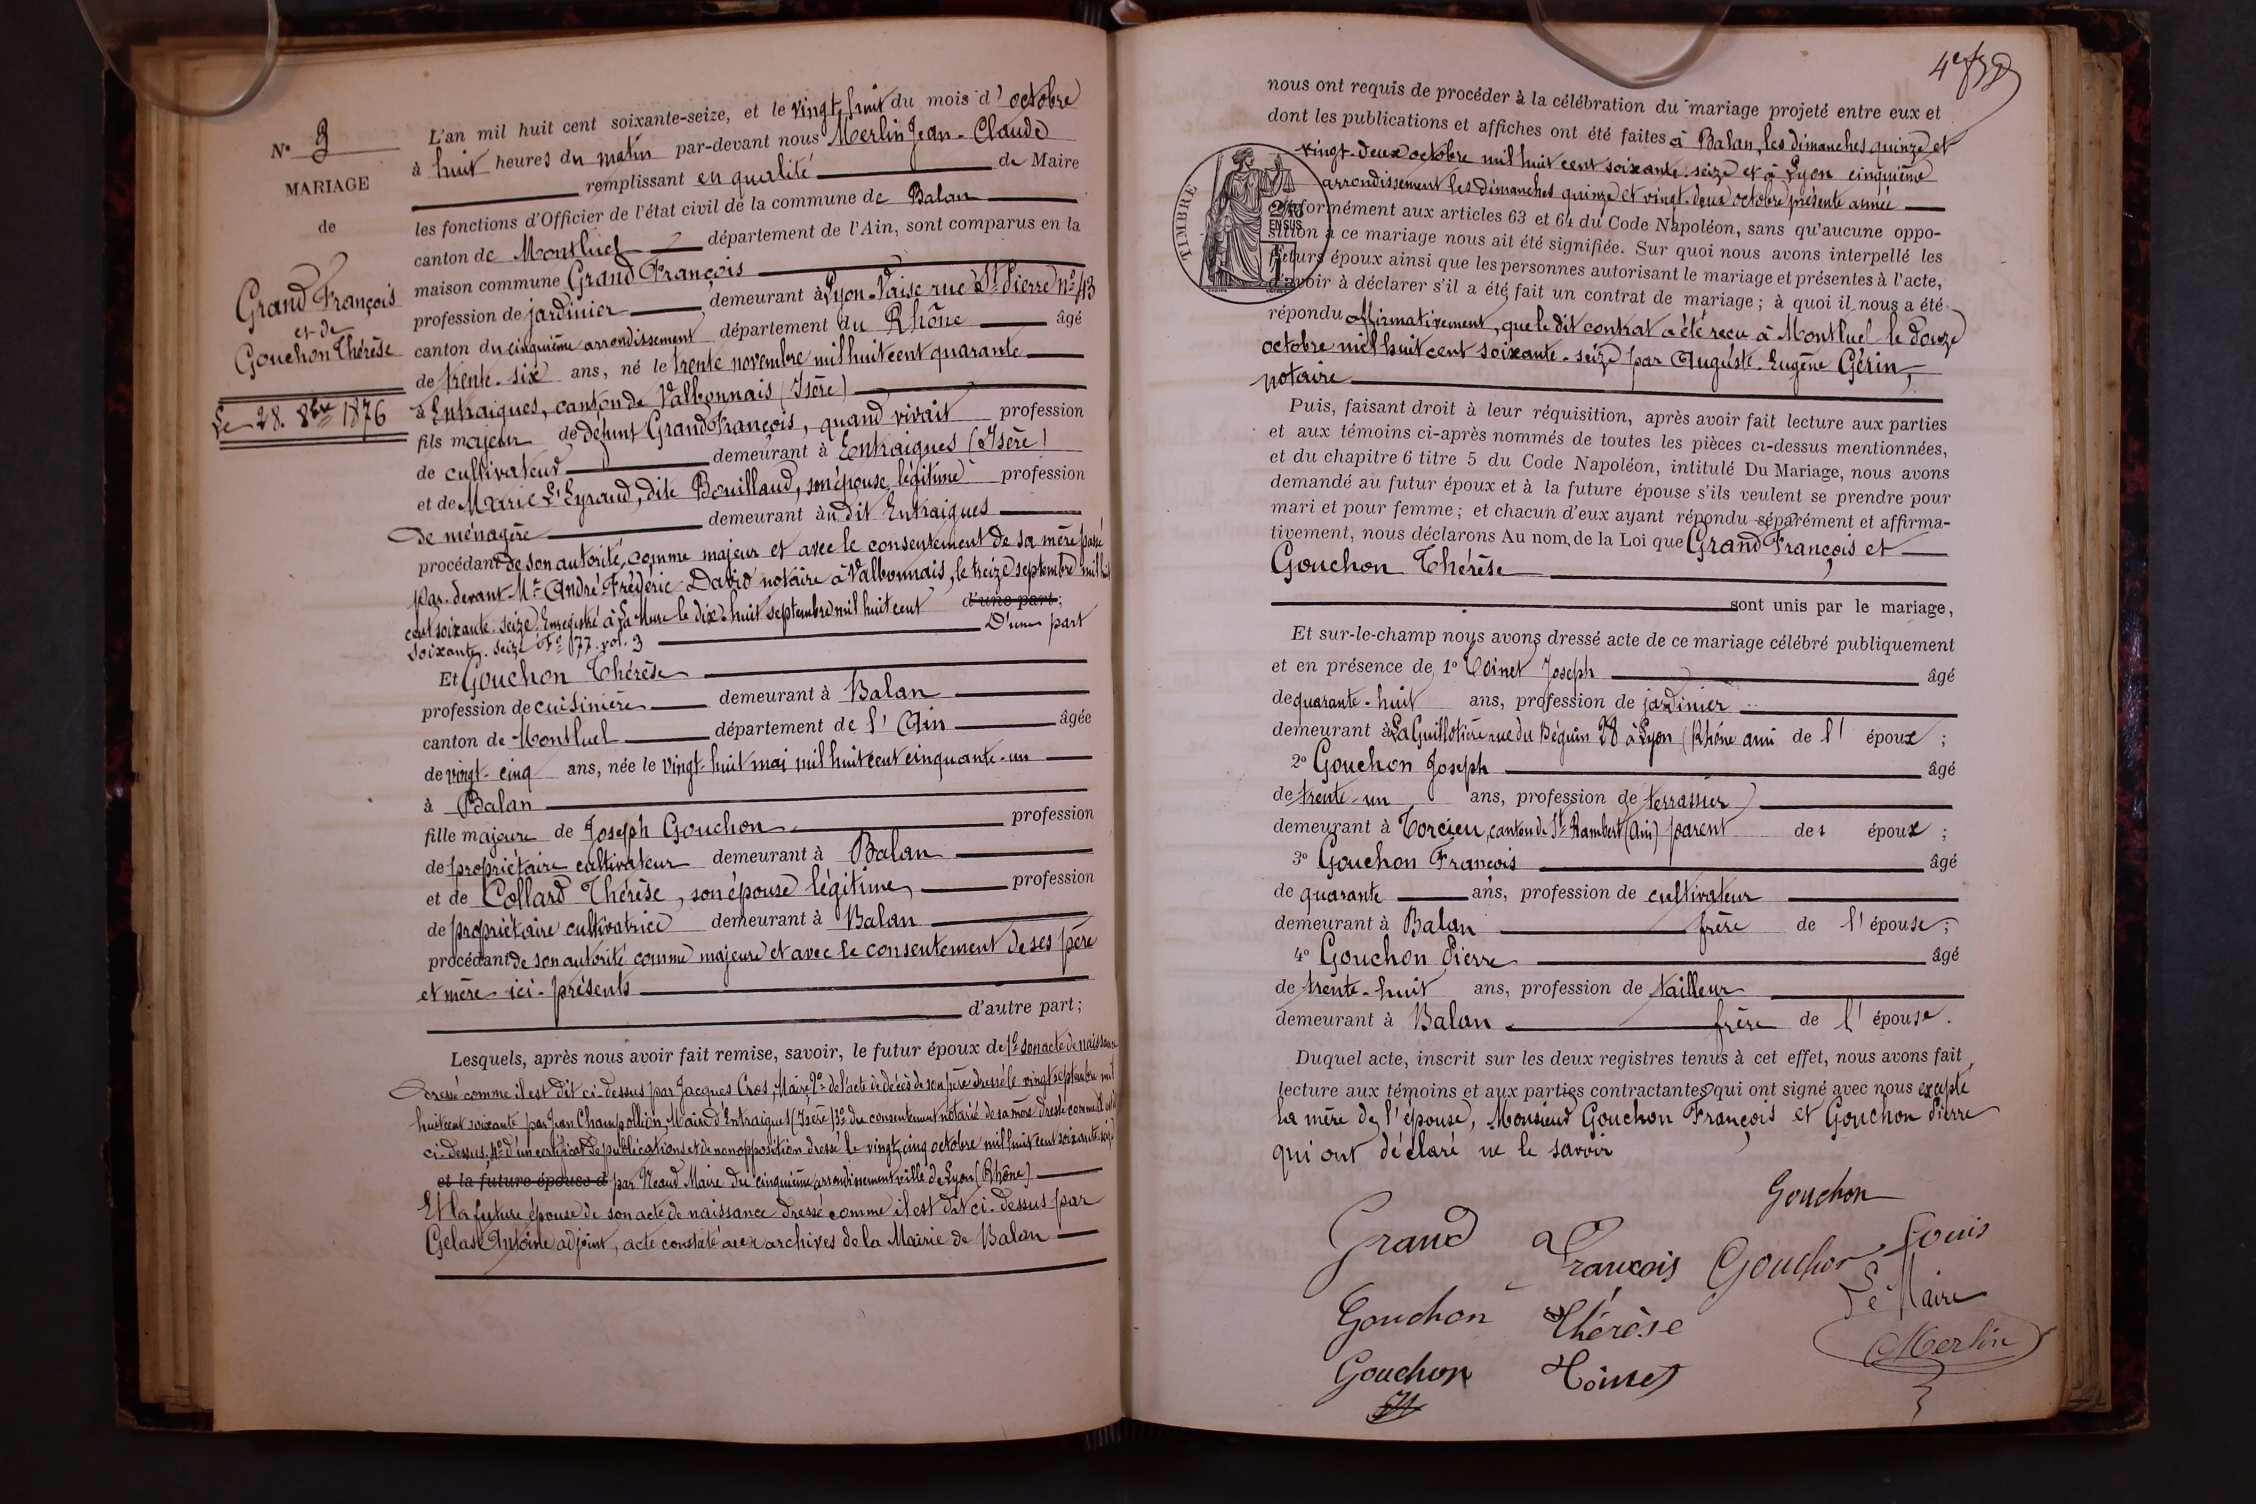 N° 3
MARIAGE
de
Grand François
et de
Gouchon Thérèse
Le 28. 8bre 1876
L'an mil huit cent soixante-seize, et le vingt-huit du mois d'octobre
à huit heures du matin par-devant nous Merlin Jean-Claude
remplissant en qualité de Maire
les fonctions d'Officier de l'état civil de la commune de Balan
canton de Montluel département de l'Ain, sont comparus en la
maison commune Grand François
profession de jardinier demeurant à Lyon-Vaise rue St Pierre n° 43
canton du cinquième arrondissement département du Rhône âgé
de trente-six ans, né le trente novembre mil huit cent quarante
à Entraigues, canton de Valbonnais (Isère)
fils majeur de défunt Grand François, quand vivait profession
de cultivateur demeurant à Entraigues (Isère)
et de Marie L'Eyraud, dite Bouillaud, son épouse légitime profession
de ménagère demeurant au dit Entraigues
procédant de son autorité, comme majeur et avec le consentement de sa mère passé
par-devant Me André-Fréderic David notaire à Valbonnais, le treize septembre mil huit
cent soixante-seize. Enregistré à La Mure le dix-huit septembre mil huit cent d'une part;
soixante-seize F° 177. vol. 3 D'une part
Et Gouchon Thérèse
profession de cuisinière demeurant à Balan
canton de Montluel département de l'Ain âgée
de vingt-cinq ans, née le vingt-huit mai mil huit cent cinquante-un
à Balan
fille majeure de Joseph Gouchon profession
de propriétaire cultivateur demeurant à Balan
et de Collard Thérèse, son épouse légitime, profession
de propriétaire cultivatrice demeurant à Balan
procédant de son autorité comme majeure et avec le consentement de ses père
et mère ici-présents
d'autre part;
Lesquels, après nous avoir fait remise, savoir, le futur époux de 1° son acte de naissance
dressé comme il est dit ci-dessus par Jacques Cros, Maire 2° de l'acte de décès de son père dressé le vingt septembre mil
huit cent soixante par Jean Champollion, Maire d'Entraigues (Isère) 3° du consentement notarié de sa mère dressé comme il est dit
ci-dessus, 4° d'un certificat de publications et de non opposition dressé le vingt-cinq octobre mil huit cent soixante-seize
et la future épouse d par Neaud Maire du cinquième arrondissement ville de Lyon (Rhône)
Et la future épouse de son acte de naissance dressé comme il est dit ci-dessus par
Gelas Antoine adjoint, acte constaté aux archives de la Mairie de Balan
nous ont requis de procéder à la célébration du mariage projeté entre eux et
dont les publications et affiches ont été faites à Balan, les dimanches quinze et
vingt-deux octobre mil huit cent soixante-seize et à Lyon cinquième
arrondissement les dimanches quinze et vingt-deux octobre présente année
conformément aux articles 63 et 64 du Code Napoléon, sans qu'aucune oppo-
sition à ce mariage nous ait été signifiée. Sur quoi nous avons interpellé les
futurs époux ainsi que les personnes autorisant le mariage et présentes à l'acte,
d'avoir à déclarer s'il a été fait un contrat de mariage; à quoi il nous a été
répondu affirmativement, que le dit contrat a été reçu à Montluel le douze
octobre mil huit cent soixante-seize par Auguste-Eugène Gérin,
notaire
TIMBRE
EN SUS
Puis, faisant droit à leur réquisition, après avoir fait lecture aux parties
et aux témoins ci-après nommés de toutes les pièces ci-dessus mentionnées,
et du chapitre 6 titre 5 du Code Napoléon, intitulé Du Mariage, nous avons
demandé au futur époux et à la future épouse s'ils veulent se prendre pour
mari et pour femme; et chacun d'eux ayant répondu séparément et affirma-
tivement, nous déclarons Au nom de la Loi que Grand François et
Gouchon Thérèse
sont unis par le mariage,
Et sur-le-champ nous avons dressé acte de ce mariage célébré publiquement
et en présence de 1° Toinet Joseph âgé
de quarante-huit ans, profession de jardinier
demeurant à La Guillotière rue du Béguin 28 à Lyon (Rhône ami de l'époux;
2° Gouchon Joseph âgé
de trente-un ans, profession de terrassier
demeurant à Torcieu, canton de St Rambert (Ain) parent des époux;
3° Gouchon François âgé
de quarante ans, profession de cultivateur
demeurant à Balan frère de l'épouse;
4° Gouchon Pierre âgé
de trente-huit ans, profession de tailleur
demeurant à Balan frère de l'épouse.
Duquel acte, inscrit sur les deux registres tenus à cet effet, nous avons fait
lecture aux témoins et aux parties contractantes qui ont signé avec nous excepté
la mère de l'épouse, Monsieur Gouchon François et Gouchon Pierre
qui ont déclaré ne le savoir
Gouchon
Grand François Gouchon Louis
Gouchon Thérèse Le Maire
Gouchon Toinet Merlin